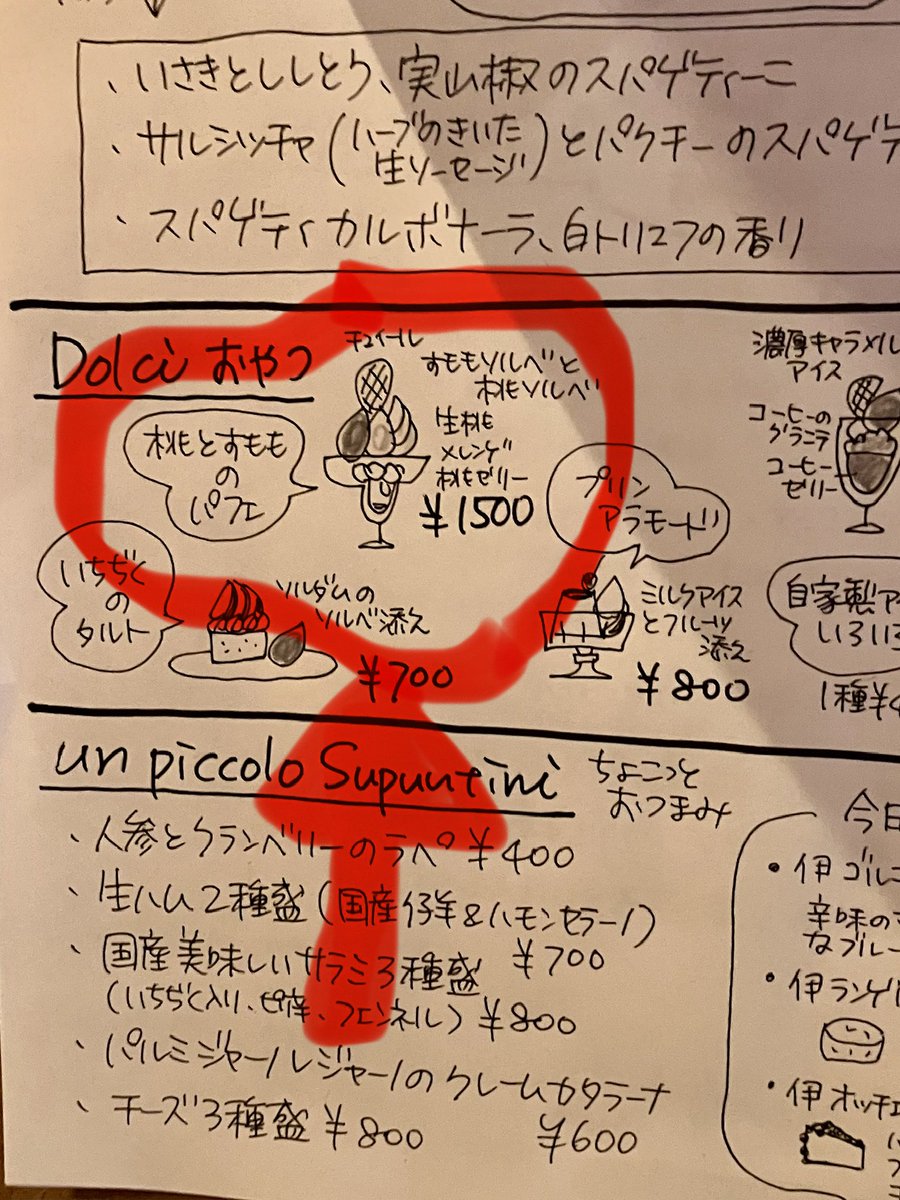 ・いさきとししとう、実山椒のスパゲティーニ
・サルシッチャ(ハーブのきいた生ソーセージ)とパクチーのスパゲテ
・スパゲティカルボナーラ、白トリュフの香り
Dolci おやつ
桃とすももの
パフェ
チュイール
すももソルベと
桃ソルベ
生桃
メレンゲ
桃ゼリー
¥1500
濃厚キャラメル
アイス
コーヒーの
グラニテ
コーヒー
ゼリー
いちぢく
の
タルト
ソルダムの
ソルベ添え
¥700
プリン
アラモード
ミルクアイス
とフルーツ
添え
¥800
自家製ア
いろいろ
1種¥4
un piccolo Supuntini ちょこっと
おつまみ
・人参とクランベリーのラペ ¥400
・生ハム2種盛(国産仔羊&ハモンセラーノ)
¥700
・国産美味しいサラミ3種盛
(いちぢく入り、ピ辛、フェンネル) ¥800
・パルミジャーノレジャーノのクレームカタラーナ
¥600
・チーズ3種盛 ¥800
今日
・伊 ゴルゴ
辛味の
なブルー
・伊 ランゲ
・伊 ホッチェ